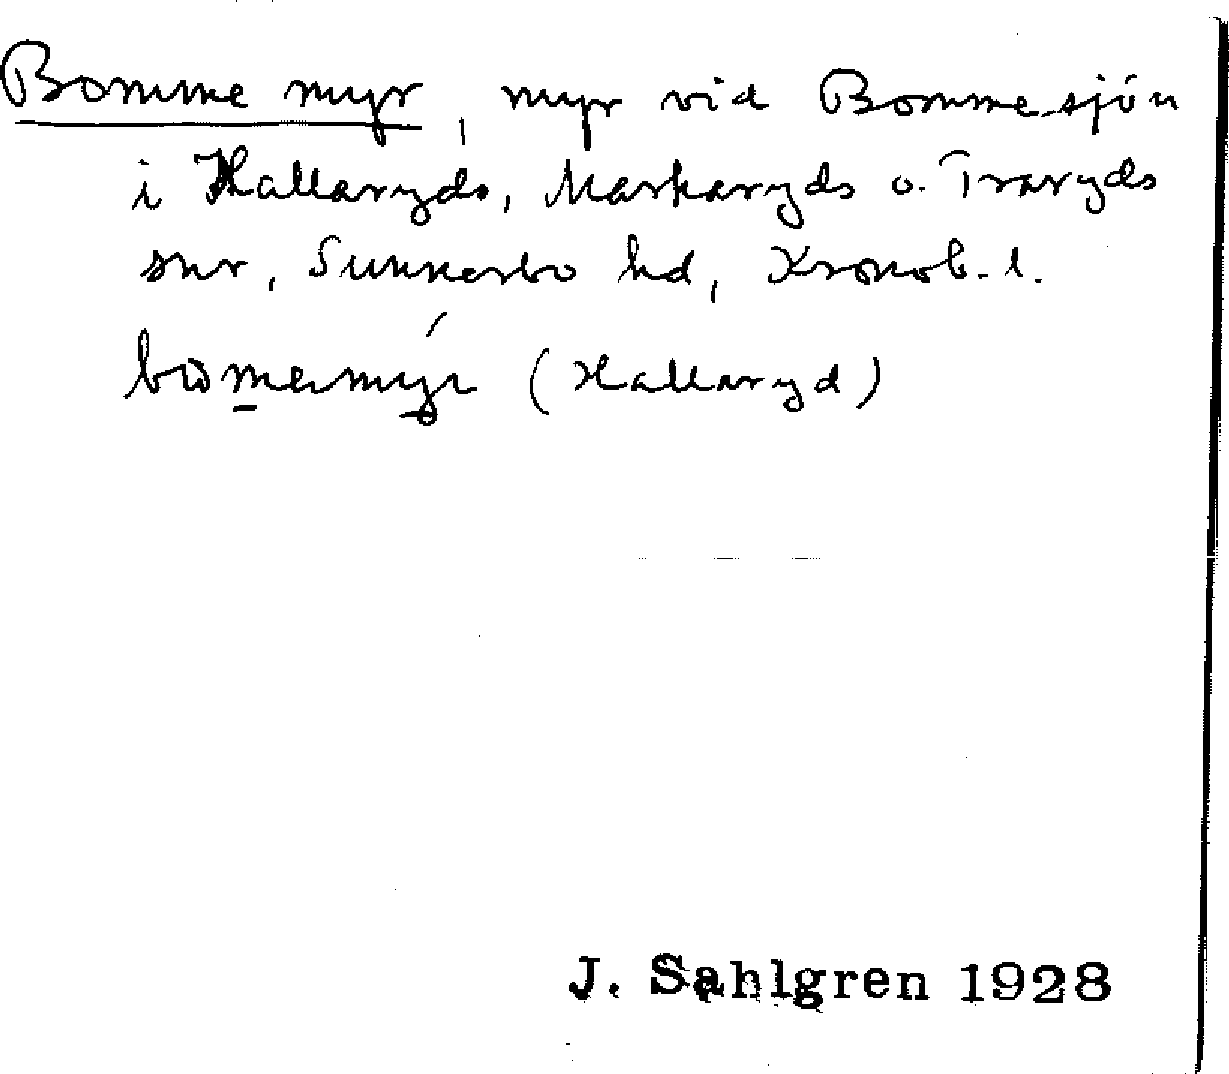 Bomme myr, myr vid Bommesjön
i Hallaryds, Markaryds o. Traryds
snr, Sunnerbo hd, Kronob. l.
(Hallaryd)
J. Sahlgren 1928